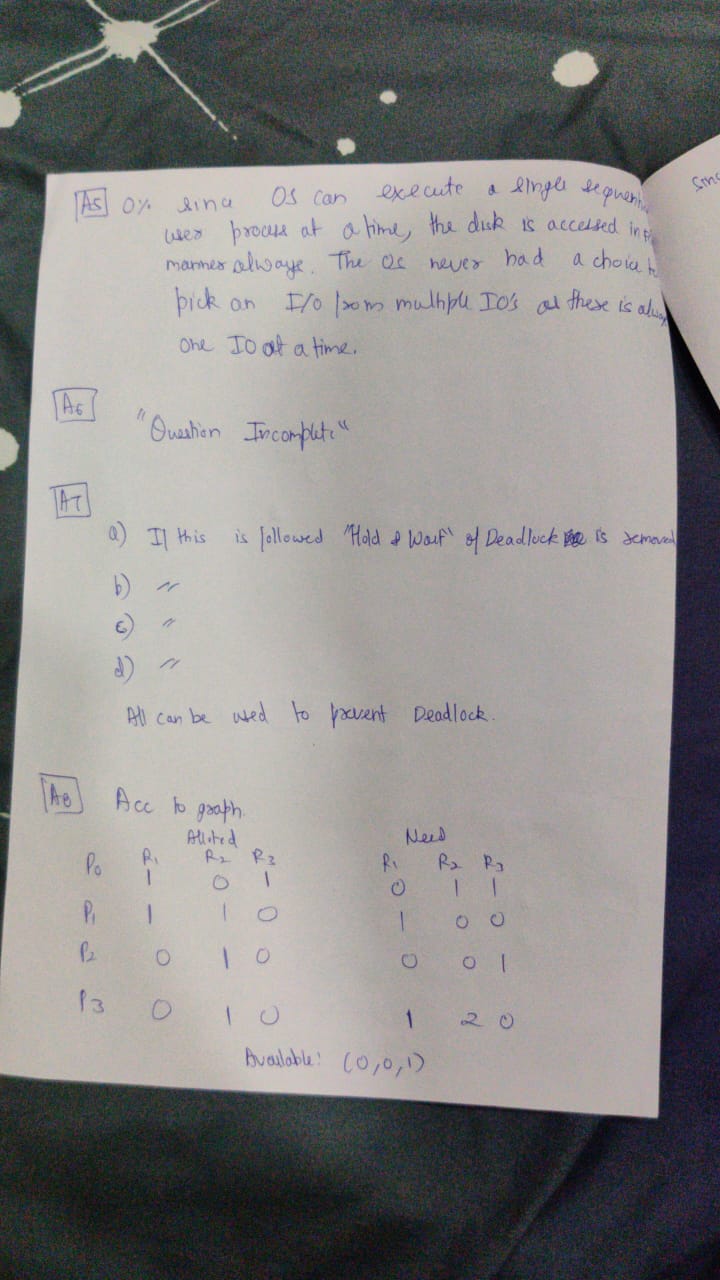 A5 0% since OS can execute a single
user process at a time, the disk is accessed in
manner always. The OS never had a choice
pick an I/O from multiple IO's as there is
one IO at a time.
A6
"Question Incomplete"
A7
a) If this is followed "Hold & Wait" of Deadlock is removed
b) 〃
c) 〃
d) 〃
All can be used to prevent Deadlock.
A8 Acc to graph.
Alloted Need
P0 R1 R2 R3 R1 R2 R3
1 0 1 0 1 1
P1 1 1 0 1 0 0
P2 0 1 0 0 0 1
P3 0 1 0 1 2 0
Available: (0,0,1)